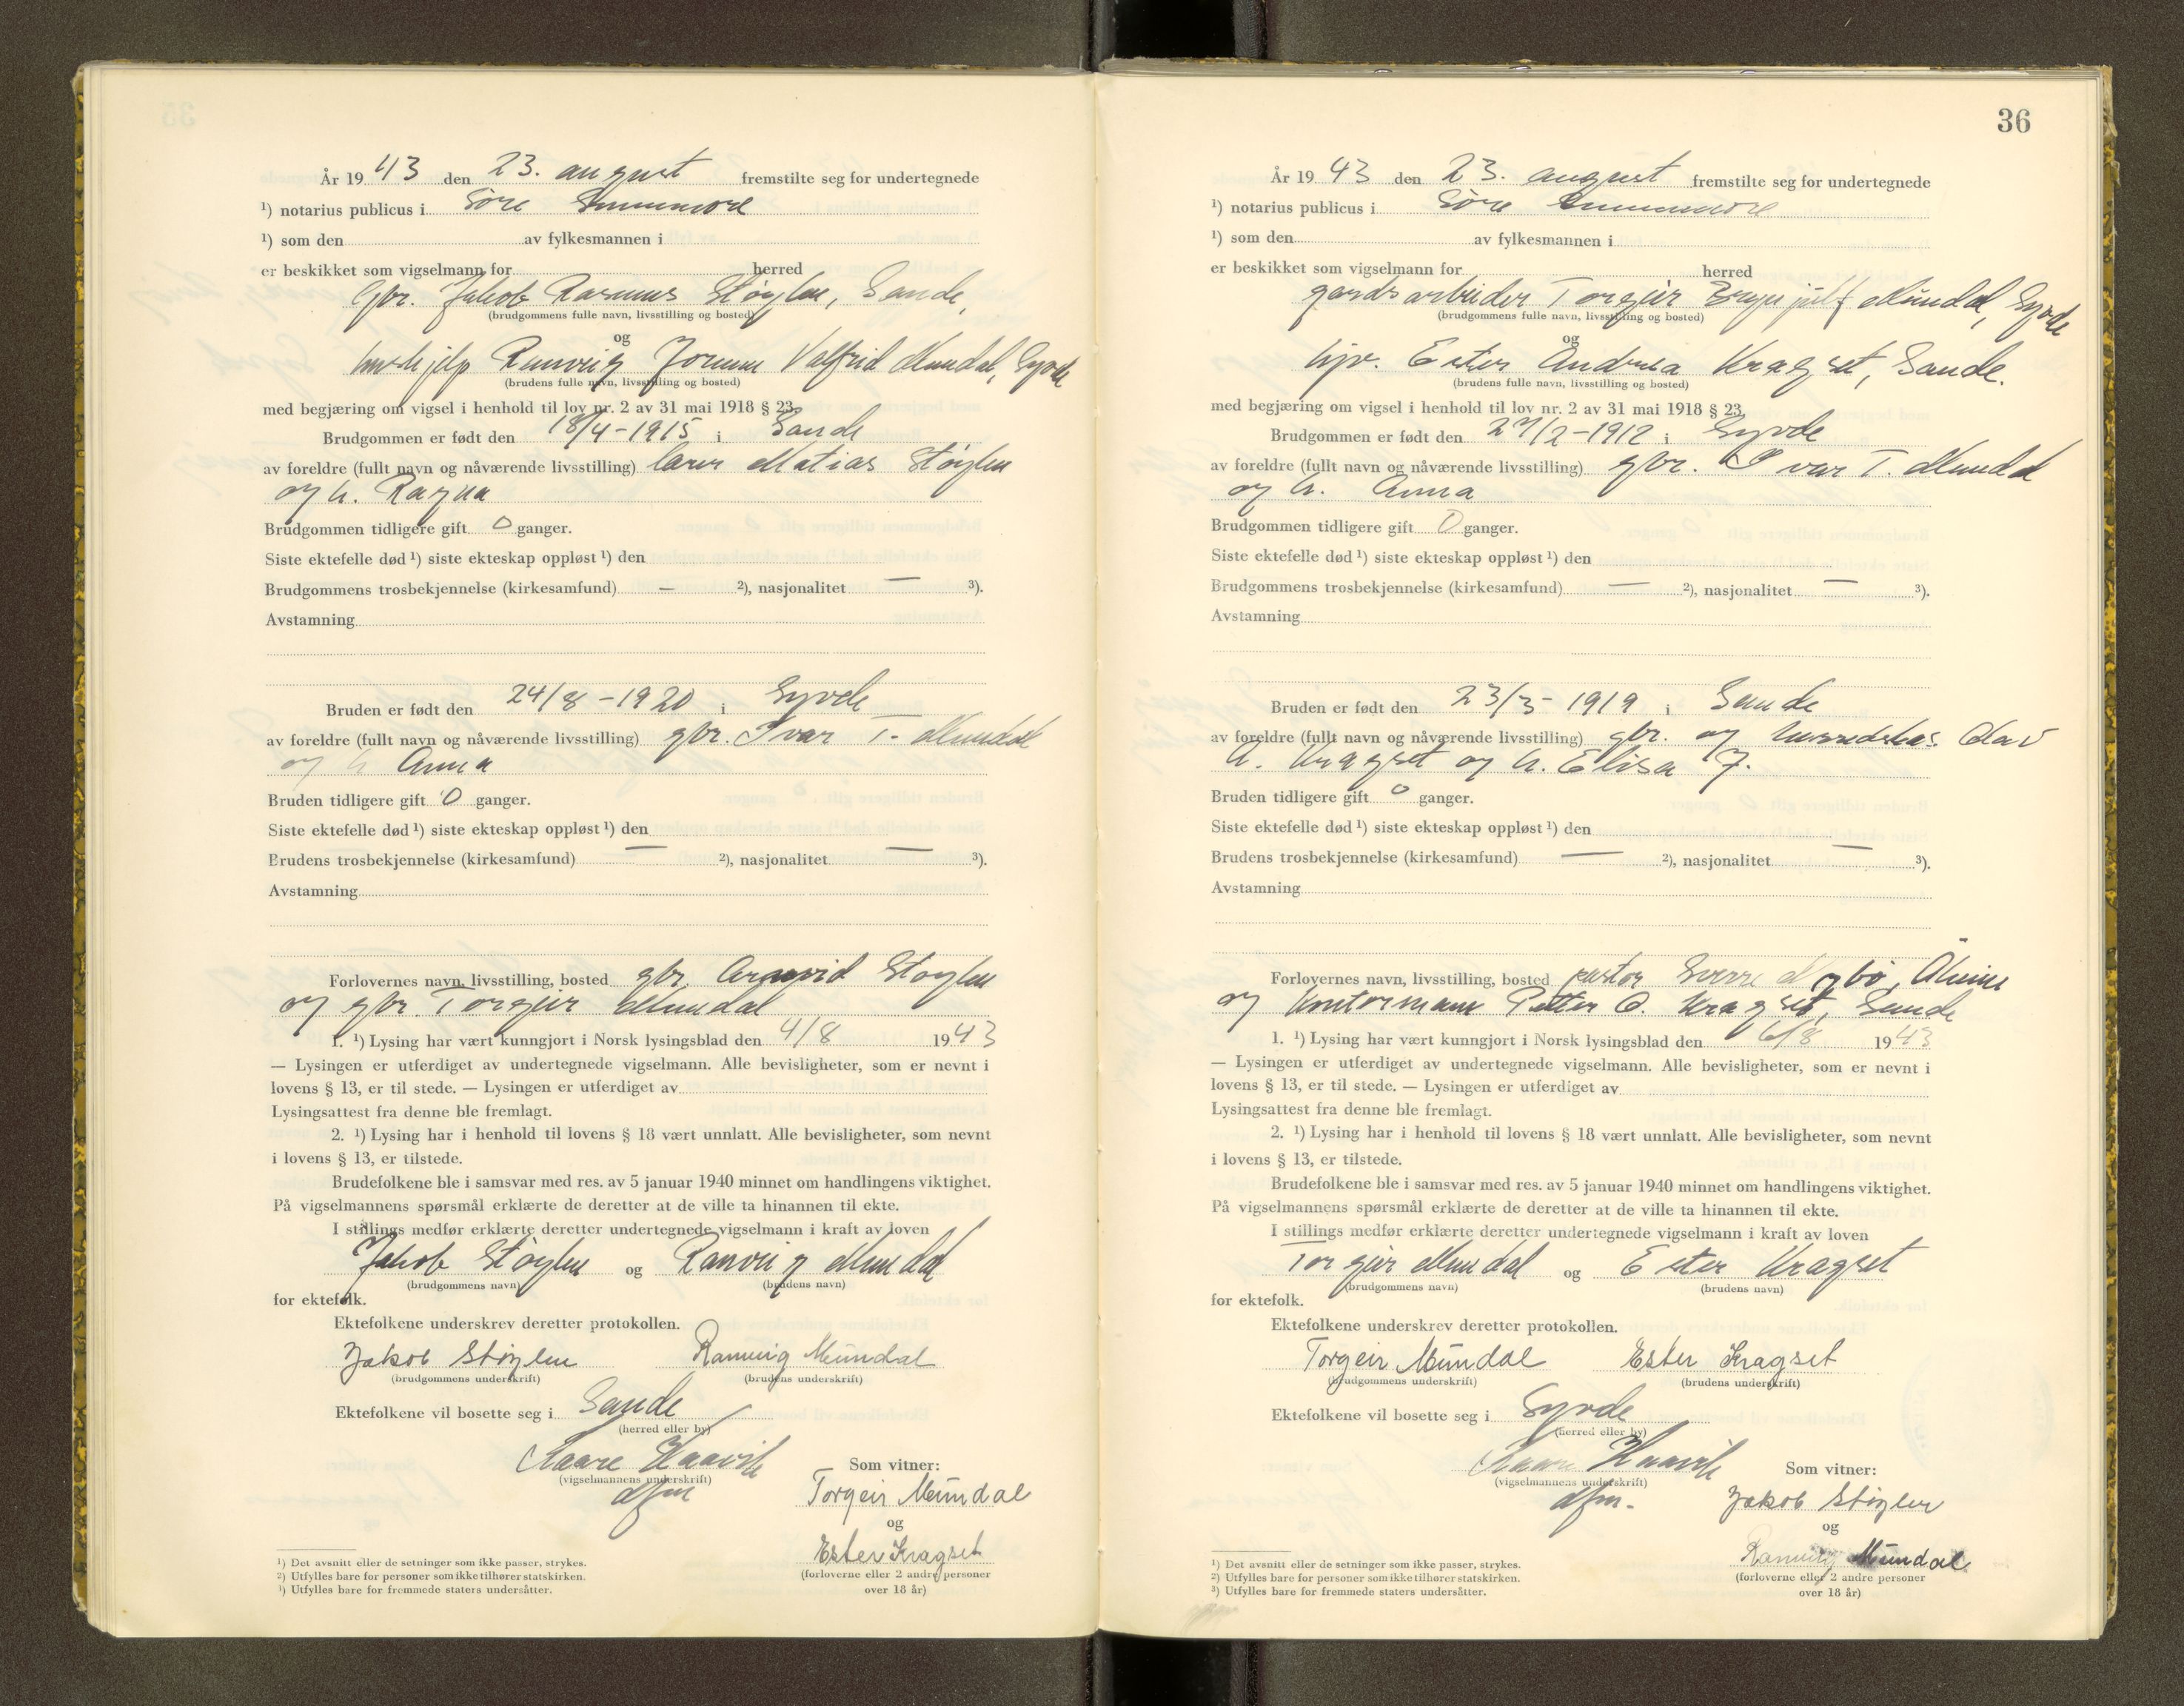 År 19 43 den 23. august fremstilte seg for undertegnede
¹) notarius publicus i Søre Sunnmøre
¹) som den av fylkesmannen i
er beskikket som vigselmann for herred
gbr. Jakob Rasmus Støylen, Sande,
(brudgommens fulle navn, livsstilling og bosted)
og
hushjelp Ranveig Jorunn Valfrid Mundal, Syvde
(brudens fulle navn, livsstilling og bosted)
med begjæring om vigsel i henhold til lov nr. 2 av 31 mai 1918 § 23.
Brudgommen er født den 18/4-1915 i Sande
av foreldre (fullt navn og nåværende livsstilling) lærer Matias Støylen
og h. Ragna
Brudgommen tidligere gift 0 ganger.
Siste ektefelle død ¹) siste ekteskap oppløst ¹) den
Brudgommens trosbekjennelse (kirkesamfund) — ²), nasjonalitet — ³).
Avstamning
Bruden er født den 24/8-1920 i Syvde
av foreldre (fullt navn og nåværende livsstilling) gbr. Ivar T. Mundal
og h Anna
Bruden tidligere gift 0 ganger.
Siste ektefelle død ¹) siste ekteskap oppløst ¹) den
Brudens trosbekjennelse (kirkesamfund) — ²), nasjonalitet — ³).
Avstamning
Forlovernes navn, livsstilling, bosted gbr. Støylen
og gbr. Torgeir Mundal
1. ¹) Lysing har vært kunngjort i Norsk lysingsblad den 4/8 19 43
— Lysingen er utferdiget av undertegnede vigselmann. Alle bevisligheter, som er nevnt i
lovens § 13, er til stede. — Lysingen er utferdiget av
Lysingsattest fra denne ble fremlagt.
2. ¹) Lysing har i henhold til lovens § 18 vært unnlatt. Alle bevisligheter, som nevnt
i lovens § 13, er tilstede.
Brudefolkene ble i samsvar med res. av 5 januar 1940 minnet om handlingens viktighet.
På vigselmannens spørsmål erklærte de deretter at de ville ta hinannen til ekte.
I stillings medfør erklærte deretter undertegnede vigselmann i kraft av loven
Jakob Støylen og Ranveig Mundal
(brudgommens navn) (brudens navn)
for ektefolk.
Ektefolkene underskrev deretter protokollen.
Jakob Støylen Ranveig Mundal
(brudgommens underskrift) (brudens underskrift)
Ektefolkene vil bosette seg i Sande
(herred eller by)
Kaare Haavik
(vigselmannens underskrift)
dfm
Som vitner:
Torgeir Mundal
og
Ester Kragset
(forloverne eller 2 andre personer
over 18 år)
¹) Det avsnitt eller de setninger som ikke passer, strykes.
²) Utfylles bare for personer som ikke tilhører statskirken.
³) Utfylles bare for fremmede staters undersåtter.
36
År 19 43 den 23. august fremstilte seg for undertegnede
¹) notarius publicus i Søre Sunnmøre
¹) som den av fylkesmannen i
er beskikket som vigselmann for herred
gardsarbeider Torgeir Mundal, Syvde
(brudgommens fulle navn, livsstilling og bosted)
og
hjv. Ester Andrea Kragset, Sande.
(brudens fulle navn, livsstilling og bosted)
med begjæring om vigsel i henhold til lov nr. 2 av 31 mai 1918 § 23.
Brudgommen er født den 27/2-1912 i Syvde
av foreldre (fullt navn og nåværende livsstilling) gbr. Ivar T. Mundal
og h. Anna
Brudgommen tidligere gift 0 ganger.
Siste ektefelle død ¹) siste ekteskap oppløst ¹) den
Brudgommens trosbekjennelse (kirkesamfund) — ²), nasjonalitet — ³).
Avstamning
Bruden er født den 23/3-1919 i Sande
av foreldre (fullt navn og nåværende livsstilling) gbr. og herredskas. Olav
A. Kragset og h. Elisa J.
Bruden tidligere gift 0 ganger.
Siste ektefelle død ¹) siste ekteskap oppløst ¹) den
Brudens trosbekjennelse (kirkesamfund) — ²), nasjonalitet — ³).
Avstamning
Forlovernes navn, livsstilling, bosted pastor Sverre
og kontormann Petter O. Kragset, Sande
1. ¹) Lysing har vært kunngjort i Norsk lysingsblad den 6/8 19 43
— Lysingen er utferdiget av undertegnede vigselmann. Alle bevisligheter, som er nevnt i
lovens § 13, er til stede. — Lysingen er utferdiget av
Lysingsattest fra denne ble fremlagt.
2. ¹) Lysing har i henhold til lovens § 18 vært unnlatt. Alle bevisligheter, som nevnt
i lovens § 13, er tilstede.
Brudefolkene ble i samsvar med res. av 5 januar 1940 minnet om handlingens viktighet.
På vigselmannens spørsmål erklærte de deretter at de ville ta hinannen til ekte.
I stillings medfør erklærte deretter undertegnede vigselmann i kraft av loven
Torgeir Mundal og Ester Kragset
(brudgommens navn) (brudens navn)
for ektefolk.
Ektefolkene underskrev deretter protokollen.
Torgeir Mundal Ester Kragset
(brudgommens underskrift) (brudens underskrift)
Ektefolkene vil bosette seg i Syvde
(herred eller by)
Kaare Haavik
(vigselmannens underskrift)
dfm.
Som vitner:
Jakob Støylen
og
Ranveig Mundal
(forloverne eller 2 andre personer
over 18 år)
¹) Det avsnitt eller de setninger som ikke passer, strykes.
²) Utfylles bare for personer som ikke tilhører statskirken.
³) Utfylles bare for fremmede staters undersåtter.